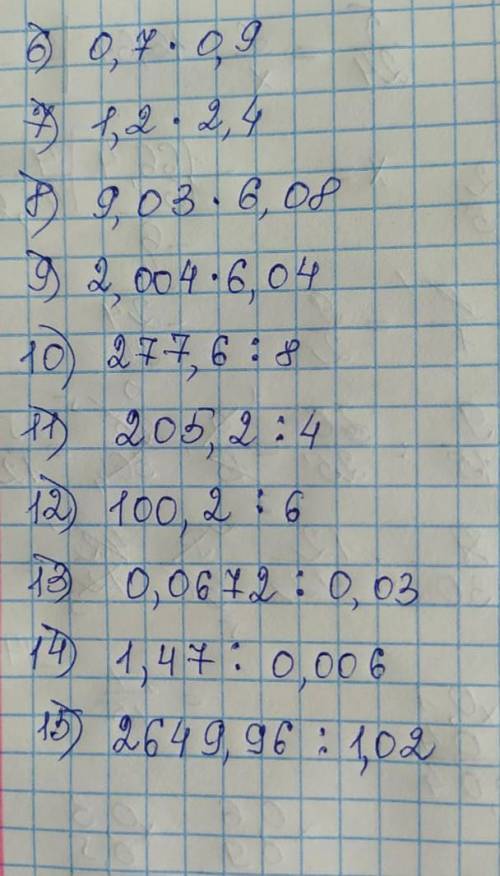 6) 0,7 · 0,9
7) 1,2 · 2,4
8) 9,03 · 6,08
9) 2,004 · 6,04
10) 277,6 : 8
11) 205,2 : 4
12) 100,2 : 6
13) 0,0672 : 0,03
14) 1,47 : 0,006
15) 2649,96 : 1,02